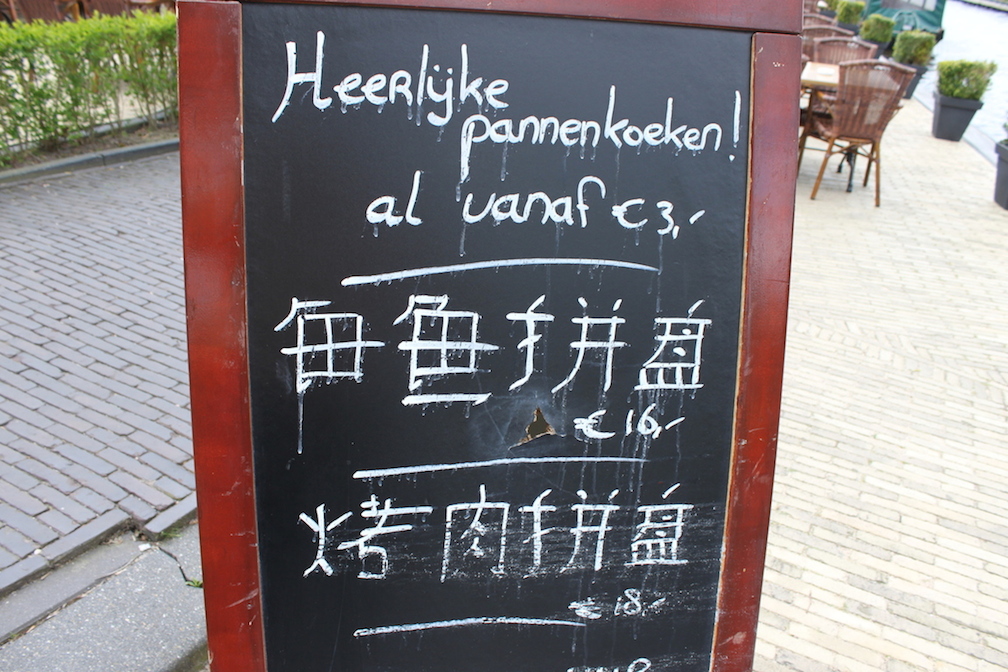 Heerlijke
pannenkoeken!
al vanaf €3,-
每鱼拼盘
€16,-
烤肉拼盘
€18,-